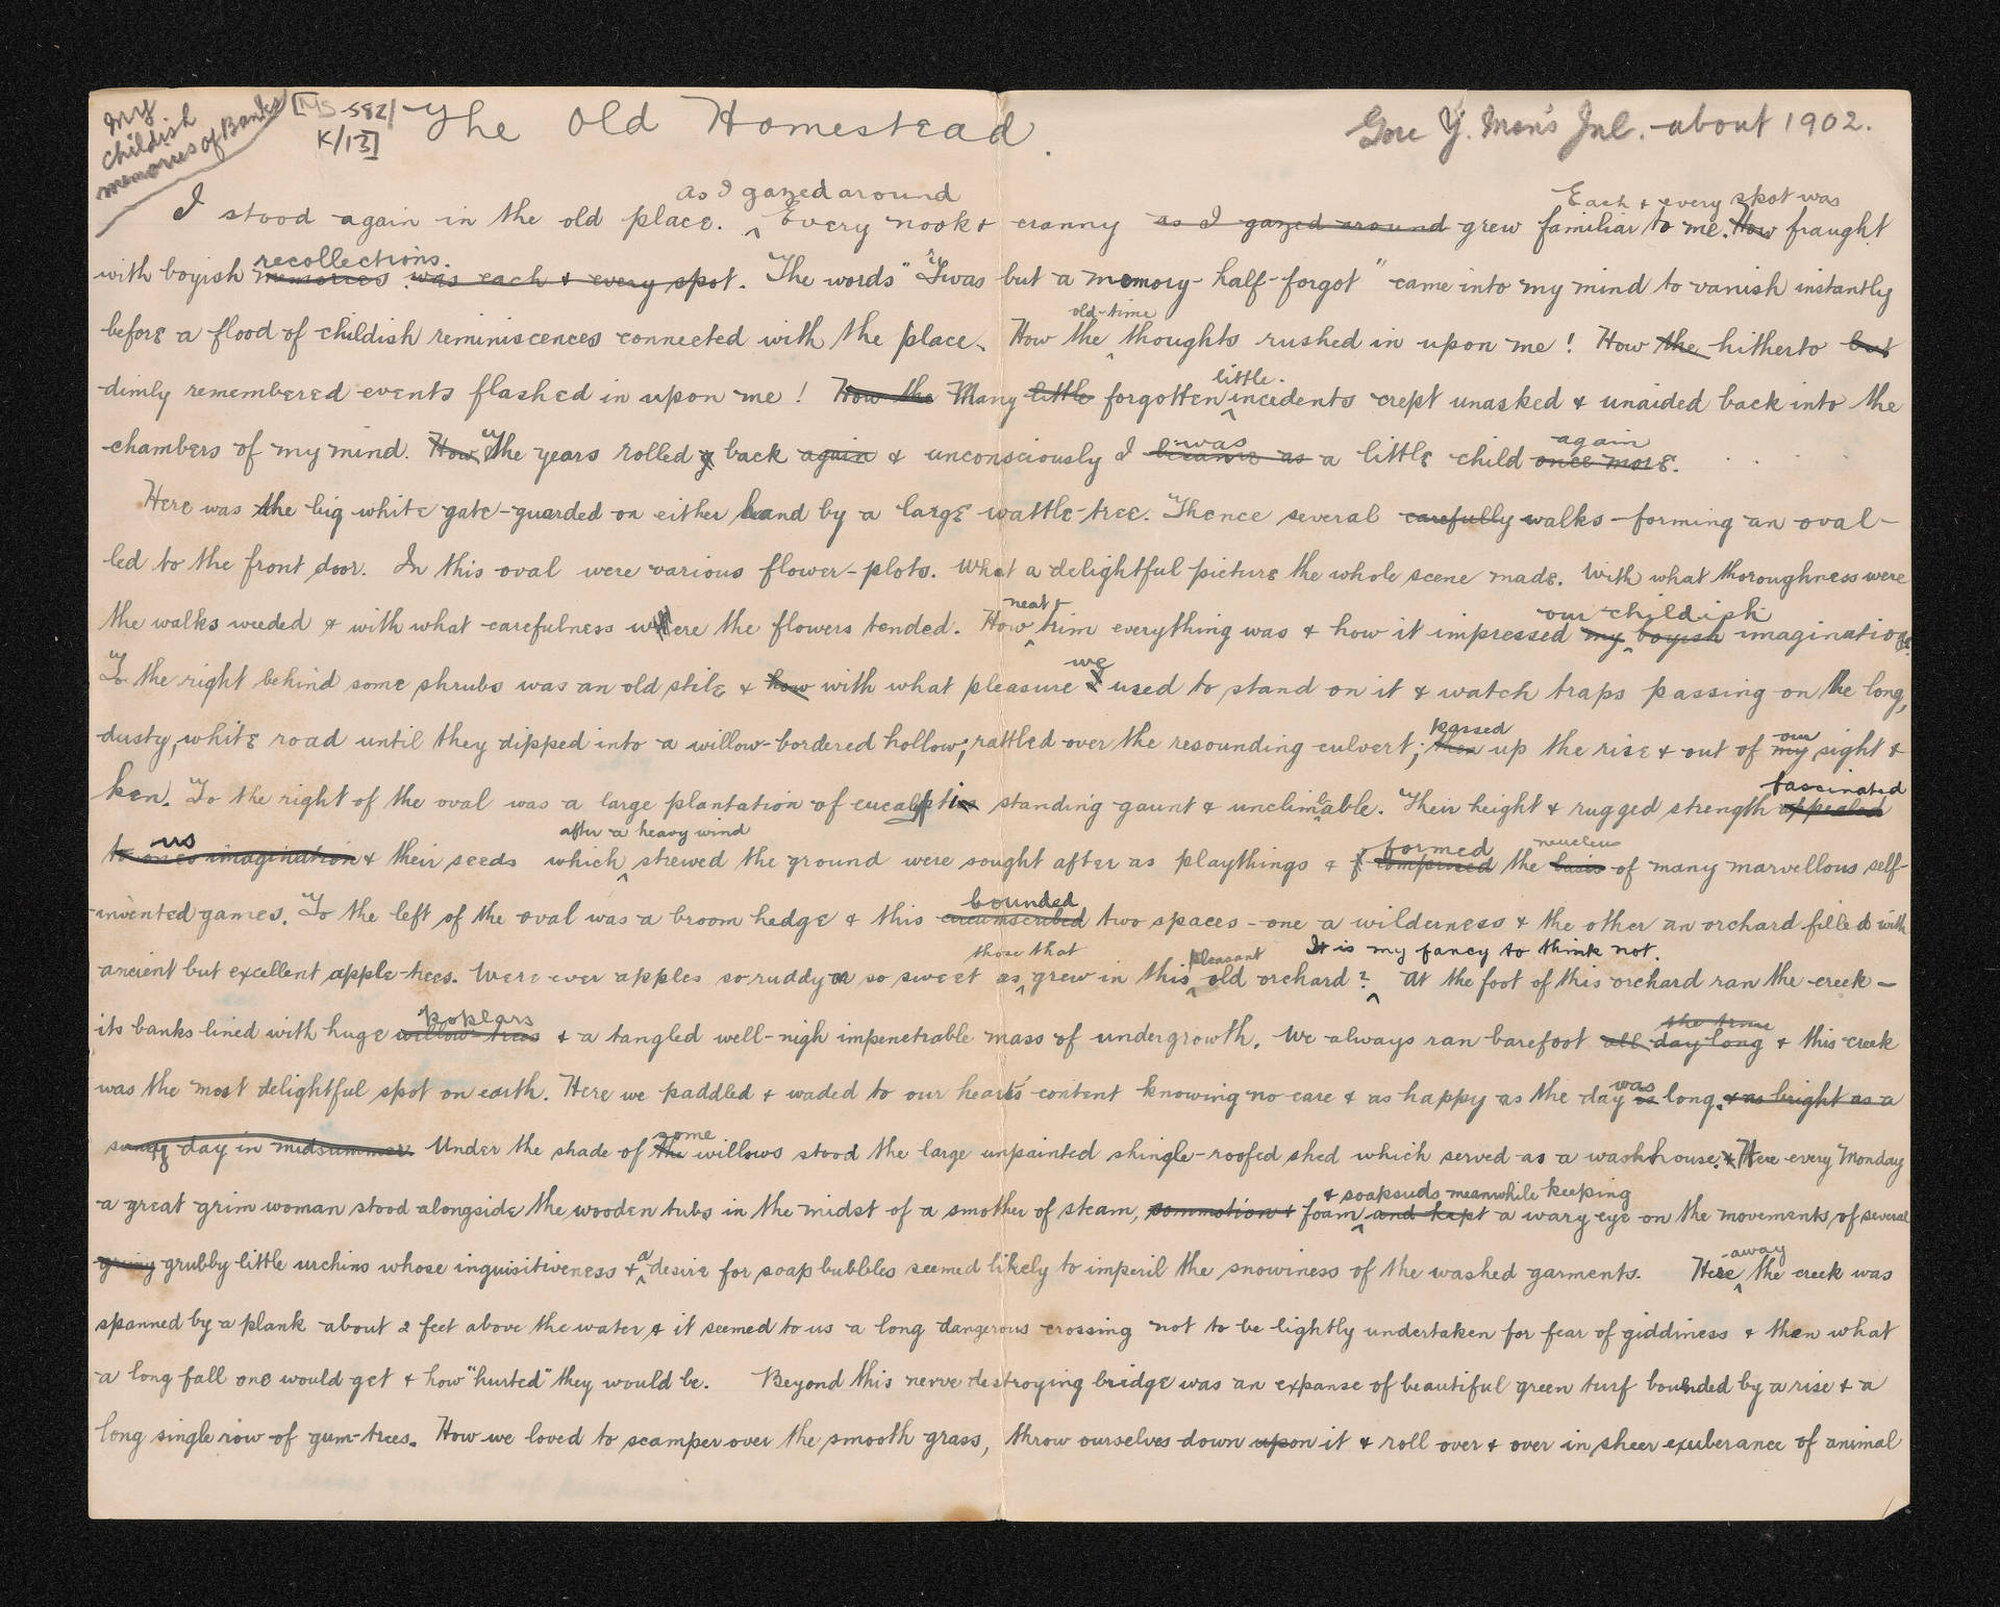 My childish memories of Banks
[MS-582/K/13]
The Old Homestead.
Gore Y. Men's Jnl. about 1902.
as I gazed around
Each & every spot was
I stood again in the old place. Every nook & cranny as I gazed around grew familiar to me. How fraught
recollections.
with boyish memories was each & every spot. The words "'Twas but a memory half-forgot" came into my mind to vanish instantly
old-time
before a flood of childish reminiscences connected with the place. How the thoughts rushed in upon me! How the hitherto but
little
dimly remembered events flashed in upon me! How the Many little forgotten incidents crept unasked & unaided back into the
was again
chambers of my mind. How The years rolled back again & unconsciously I became as a little child once more.
Here was the big white gate-guarded on either hand by a large wattle-tree. Thence several carefully walks-forming an oval-
led to the front door. In this oval were various flower-plots. What a delightful picture the whole scene made. With what thoroughness were
neat & our childish
the walks weeded & with what carefulness were the flowers tended. How trim everything was & how it impressed my boyish imaginations.
we
To the right behind some shrubs was an old stile & how with what pleasure I used to stand on it & watch traps passing on the long,
passed our
dusty, white road until they dipped into a willow-bordered hollow, rattled over the resounding culvert; then up the rise & out of my sight &
fascinated
ken. To the right of the oval was a large plantation of eucalypti standing gaunt & unclimable. Their height & rugged strength appealed
us after a heavy wind formed nucleus
to ones imagination & their seeds which strewed the ground were sought after as playthings & comprised the basis of many marvellous self-
bounded
invented games. To the left of the oval was a broom hedge & this circumscribed two spaces - one a wilderness & the other an orchard filled with
those that pleasant It is my fancy to think not.
ancient but excellent apple-trees. Were ever apples so ruddy or so sweet as grew in this old orchard? At the foot of this orchard ran the creek -
poplars the time
its banks lined with huge willow-trees & a tangled well-nigh impenetrable mass of undergrowth. We always ran barefoot all day long & this creek
was
was the most delightful spot on earth. Here we paddled & waded to our heart's content knowing no care & as happy as the day is long. & as bright as a
some
sunny day in midsummer. Under the shade of the willows stood the large unpainted shingle-roofed shed which served as a washhouse. & Here every Monday
& soapsuds meanwhile keeping
a great grim woman stood alongside the wooden tubs in the midst of a smother of steam, commotion & foam and kept a wary eye on the movements of several
a away
grimy grubby little urchins whose inquisitiveness & desire for soap bubbles seemed likely to imperil the snowiness of the washed garments. Here the creek was
spanned by a plank about 2 feet above the water & it seemed to us a long dangerous crossing not to be lightly undertaken for fear of giddiness & then what
a long fall one would get & how "hurted" they would be. Beyond this nerve destroying bridge was an expanse of beautiful green turf bounded by a rise & a
long single row of gum-trees. How we loved to scamper over the smooth grass, throw ourselves down upon it & roll over & over in sheer exuberance of animal